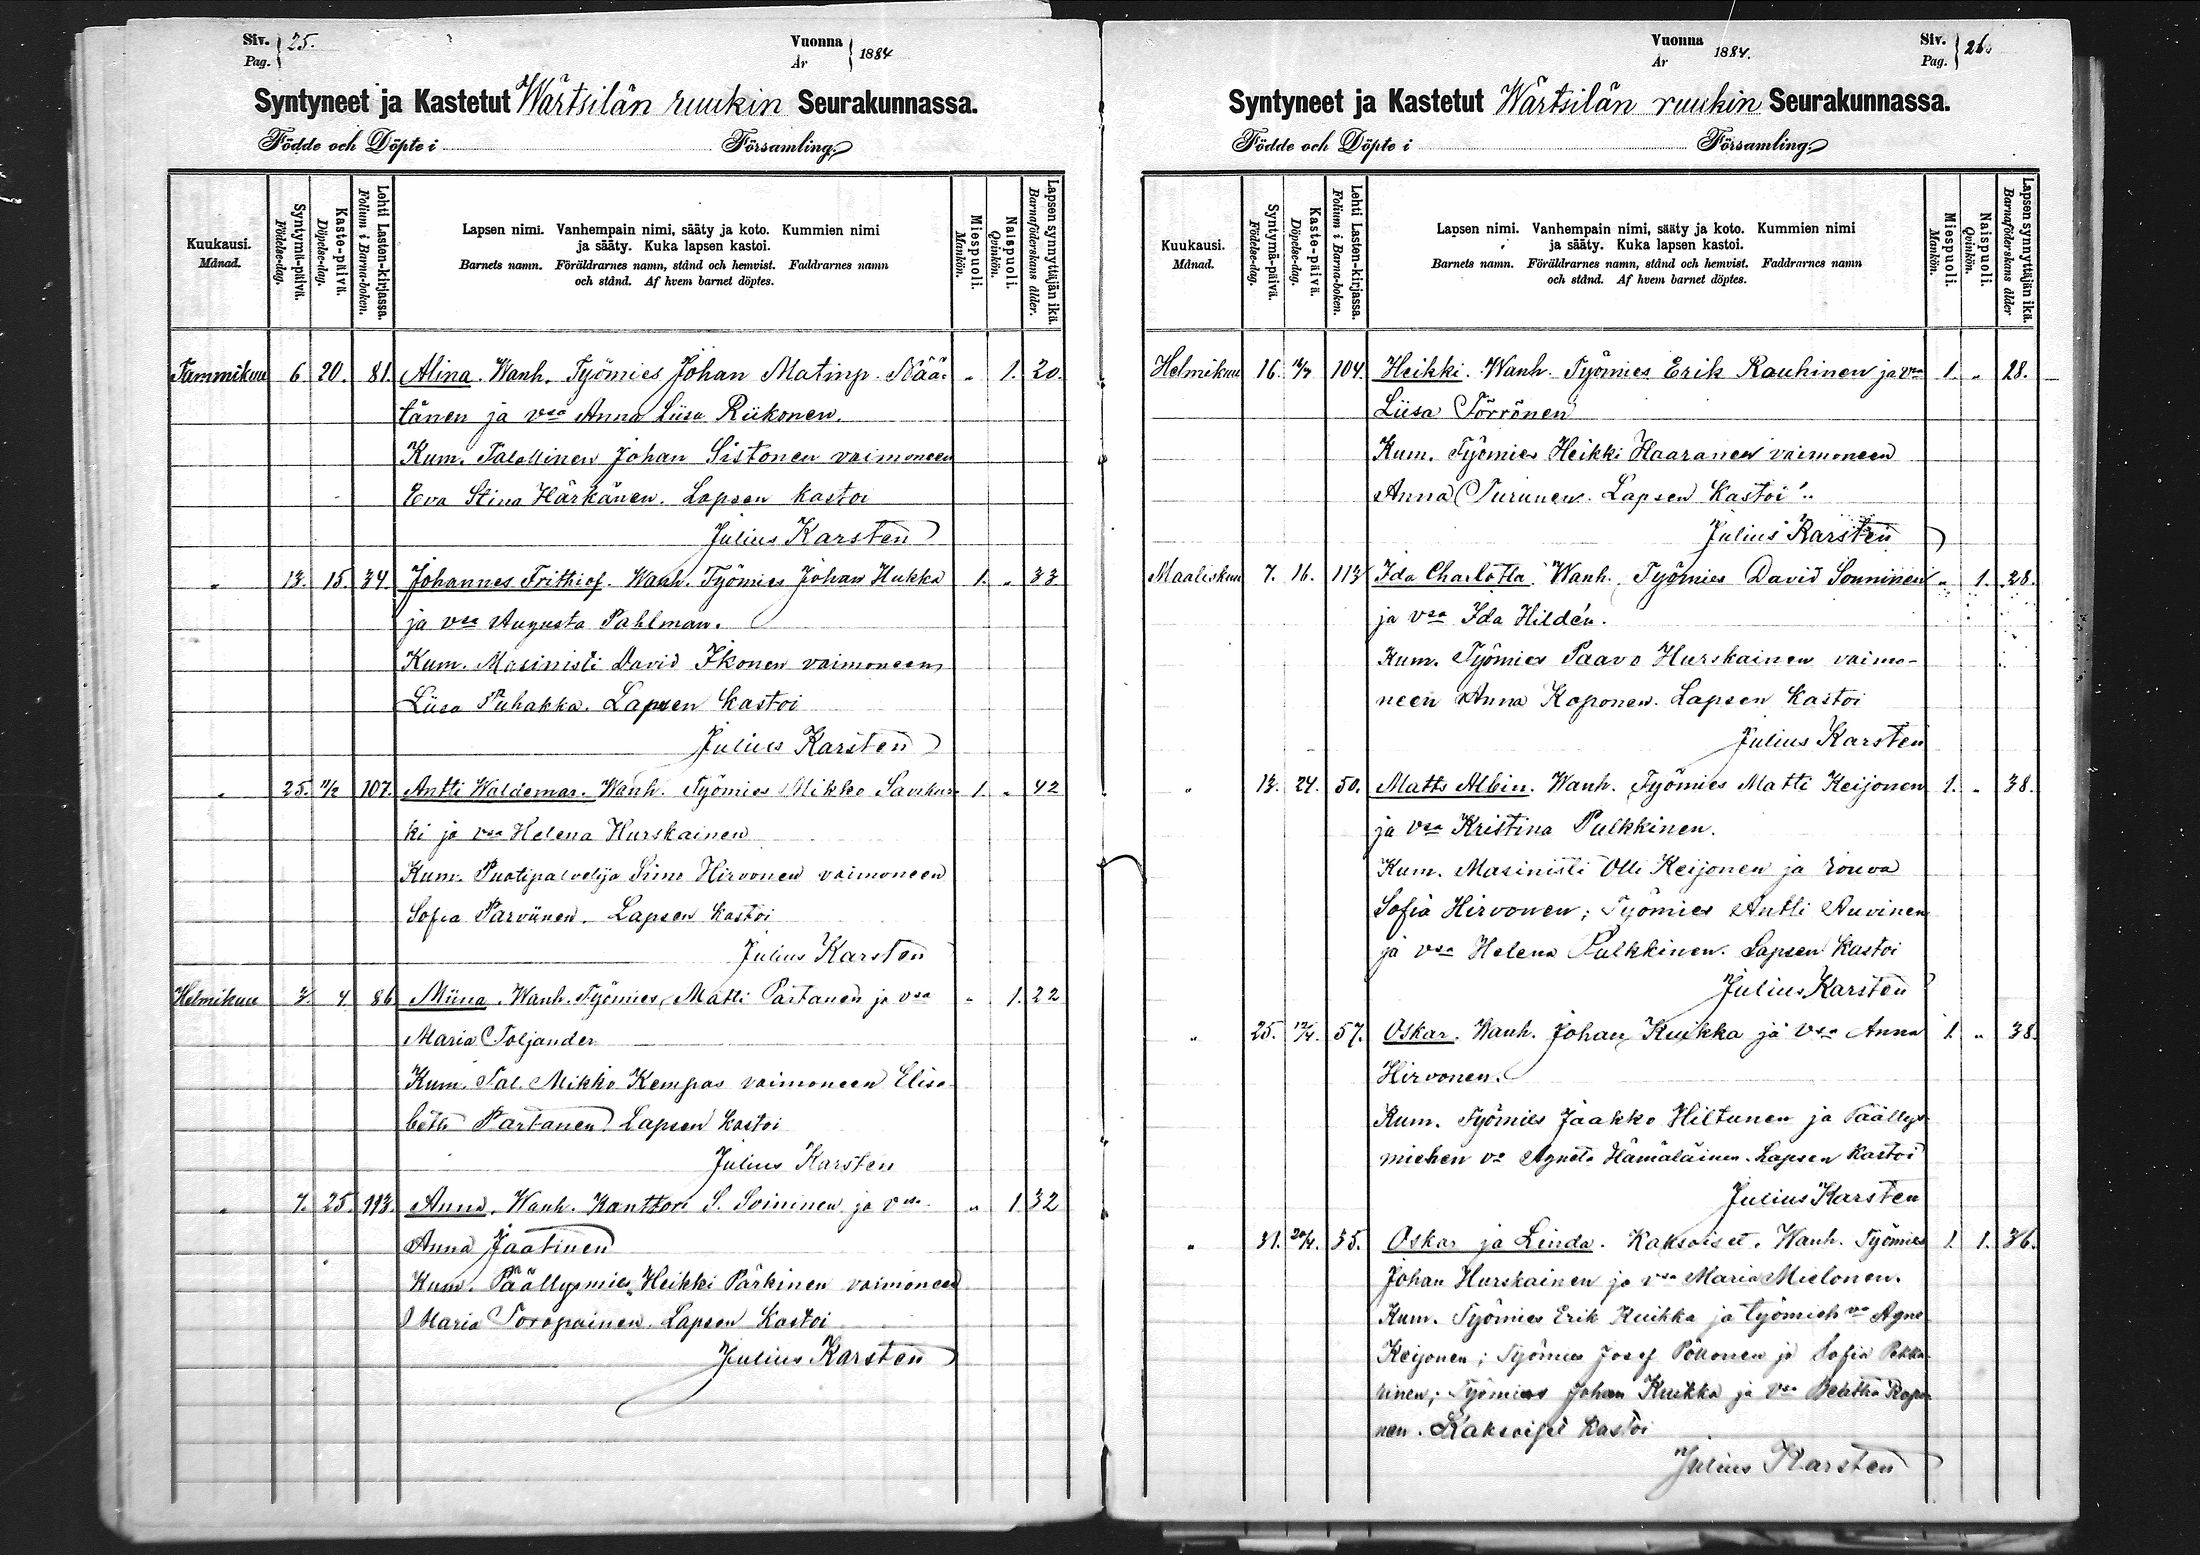 Siv. Pag. 25.
Vuonna År 1884
Syntyneet ja Kastetut Wärtsilän ruukin Seurakunnassa.
Födde och Döpte i Församling.
Kuukausi. Månad.
Syntymä-päivä. Födelse-dag.
Kaste-päivä. Döpelse-dag.
Lehti Lasten-kirjassa. Folium i Barna-boken.
Lapsen nimi. Vanhempain nimi, sääty ja koto. Kummien nimi
ja sääty. Kuka lapsen kastoi.
Barnets namn. Föräldrarnes namn, stånd och hemvist. Faddrarnes namn
och stånd. Af hvem barnet döptes.
Miespuoli. Mankön.
Naispuoli. Qvinkön.
Lapsen synnyttäjän ikä. Barnaföderskans ålder.
Tammikuu 6. 20. 81. Alina. Wanh. Työmies Johan Matinp. Nää- „ 1. 20.
tänen ja vsa Anna Liisa Riikonen.
Kum. Talollinen Johan Sistonen vaimoneen
Eva Stina Härkänen. Lapsen kastoi
Julius Karsten
„ 13. 15. 34. Johannes Frithiof. Wanh. Työmies Johan Hukka 1. „ 33
ja vsa Augusta Pahlman.
Kum. Masinisti David Ikonen vaimoneen
Liisa Puhakka. Lapsen kastoi
Julius Karsten
„ 25. 11/2 107. Antti Waldemar. Wanh. Työmies Mikko Savikur- 1. „ 42
ki ja vsa Helena Hurskainen
Kum. Puotipalvelija Simo Hirvonen vaimoneen
Sofia Parviinen. Lapsen kastoi
Julius Karsten
Helmikuu 3. 4. 86 Miina. Wanh. Työmies Matti Partanen ja vsa „ 1. 22
Maria Toljander
Kum. Tal. Mikko Kempas vaimoneen Elisa
beth Partanen Lapsen kastoi
Julius Karsten
„ 7. 25. 113. Anna. Wanh. Kanttori S. Soininen ja vsa „ 1 32
Anna Jaatinen
Kum. Päällysmies Heikki Pärkinen vaimoneen
Maria Toropainen. Lapsen kastoi
Julius Karsten
Vuonna År 1884.
Siv. Pag. 26.
Syntyneet ja Kastetut Wärtsilän ruukin Seurakunnassa.
Födde och Döpte i Församling.
Kuukausi. Månad.
Syntymä-päivä. Födelse-dag.
Kaste-päivä. Döpelse-dag.
Lehti Lasten-kirjassa. Folium i Barna-boken.
Lapsen nimi. Vanhempain nimi, sääty ja koto. Kummien nimi
ja sääty. Kuka lapsen kastoi.
Barnets namn. Föräldrarnes namn, stånd och hemvist. Faddrarnes namn
och stånd. Af hvem barnet döptes.
Miespuoli. Mankön.
Naispuoli. Qvinkön.
Lapsen synnyttäjän ikä. Barnaföderskans ålder
Helmikuu 16. 104. Heikki. Wanh. Työmies Erik Rauhinen ja vsa 1. „ 28.
Liisa Törrönen
Kum. Työmies Heikki Haaranen vaimoneen
Anna Turunen. Lapsen kastoi
Julius Karsten
Maaliskuu 7. 16. 113 Ida Charlotta. Wanh. Työmies David Sonninen „ 1. 28.
ja vsa Ida Hildén.
Kum. Työmies Paavo Hurskainen vaimo-
neen Anna Koponen. Lapsen kastoi
Julius Karsten
„ 13. 24. 50. Matts Albin. Wanh. Työmies Matti Keijonen 1. „ 38.
ja vsa Kristina Pulkkinen.
Kum. Masinisti Olli Keijonen ja rouva
Sofia Hirvonen; Työmies Antti Auvinen
ja vsa Helena Pulkkinen. Lapsen kastoi
Julius Karsten
„ 25. 57. Oskar. Wanh. Johan Kuikka ja vsa Anna 1. „ 38.
Hirvonen.
Kum. Työmies Jaakko Hiltunen ja Päällys
miehen va Agneta Hämäläinen. Lapsen kastoi
Julius Karsten
„ 31. 20/4. 35. Oskar ja Linda. Kaksoiset. Wanh. Työmies 1. 1. 36.
Johan Hurskainen ja vsa Maria Mielonen.
Kum. Työmies Erik Kuikka ja työmieh va Agne
Keijonen; Työmies Josef Pöllönen ja Sofia Pekka-
rinen; Työmies Johan Kuikka ja vsa Bertha Ropo-
nen. Kaksoiset kastoi
Julius Karsten